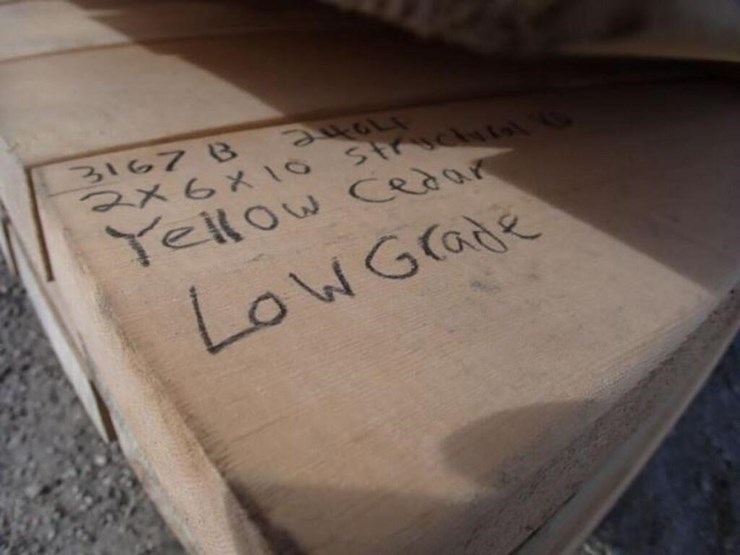 3167 B
2x6x10 structural
Yellow Cedar
Low Grade